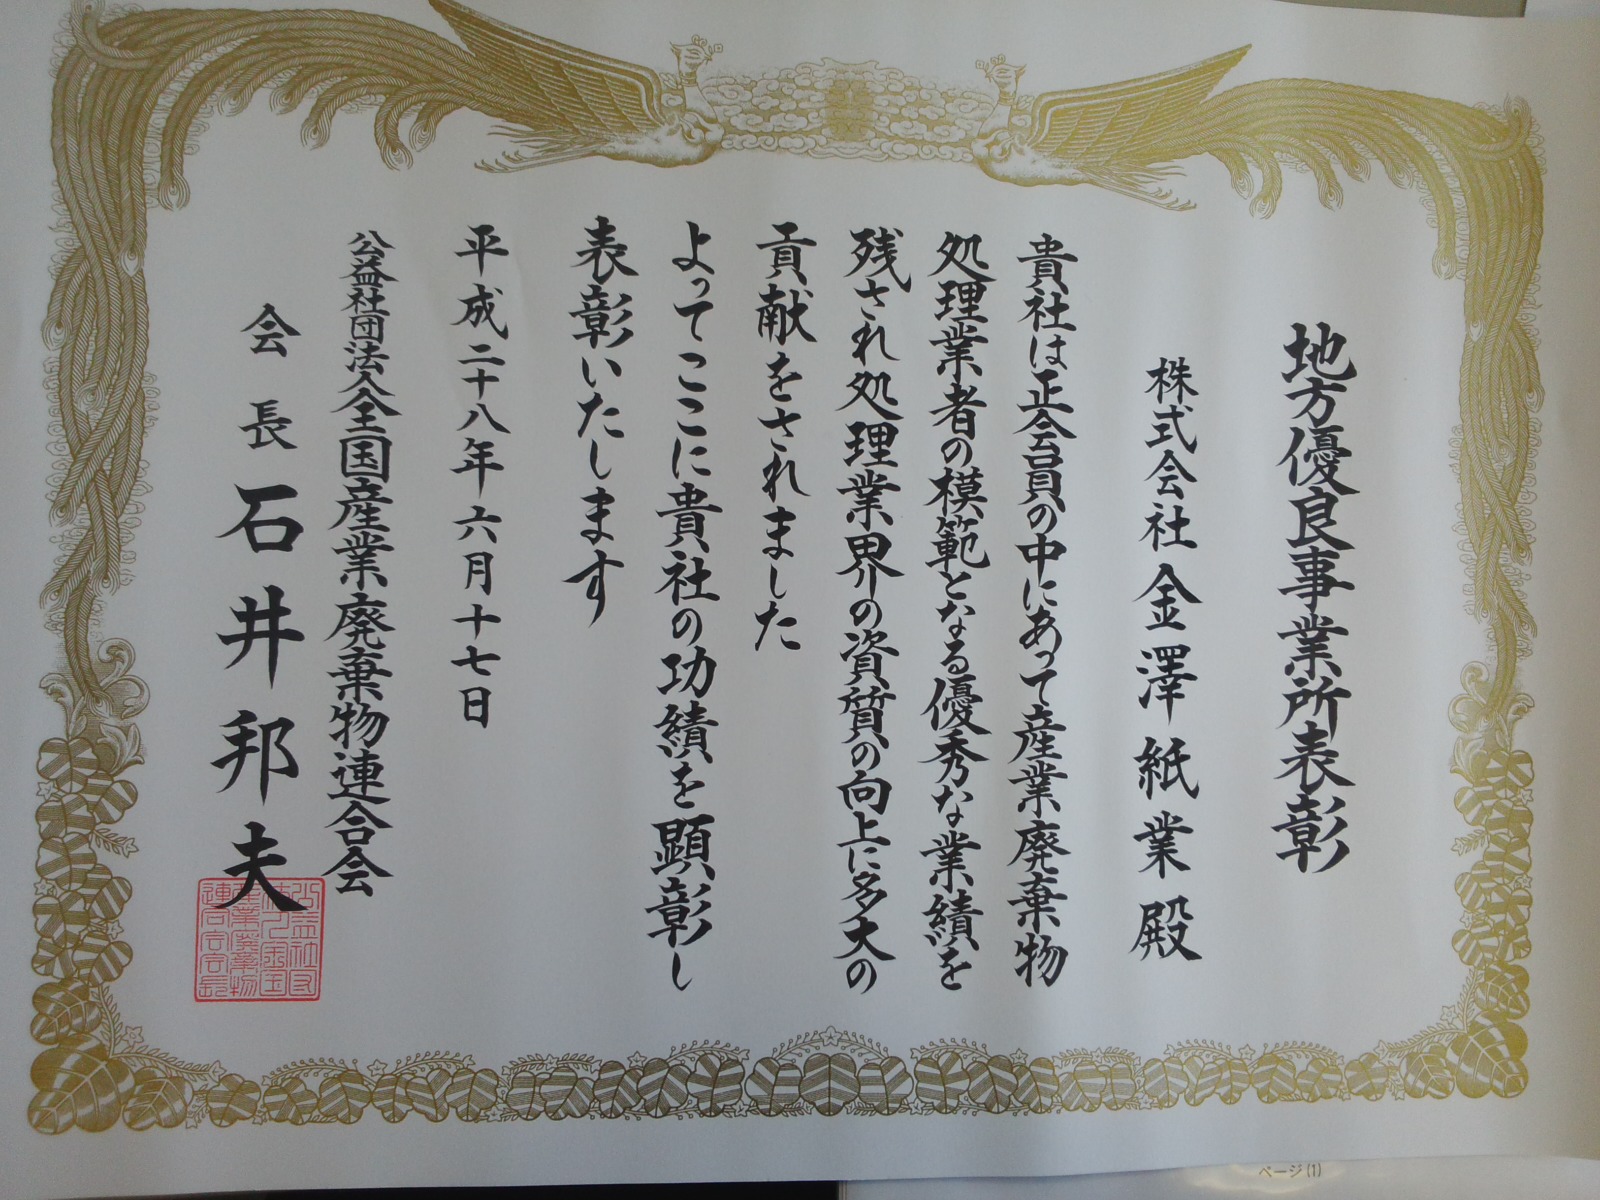 地方優良事業所表彰
株式会社金澤紙業殿
貴社は正会員の中にあって産業廃棄物
処理業者の模範となる優秀な業績を
残され処理業界の資質の向上に多大の
貢献をされました
よってここに貴社の功績を顕彰し
表彰いたします
平成二十八年六月十七日
公益社団法人全国産業廃棄物連合会
会長石井邦夫
公益社団
法人全国
産業廃棄物
連合会会長
ページ(1)